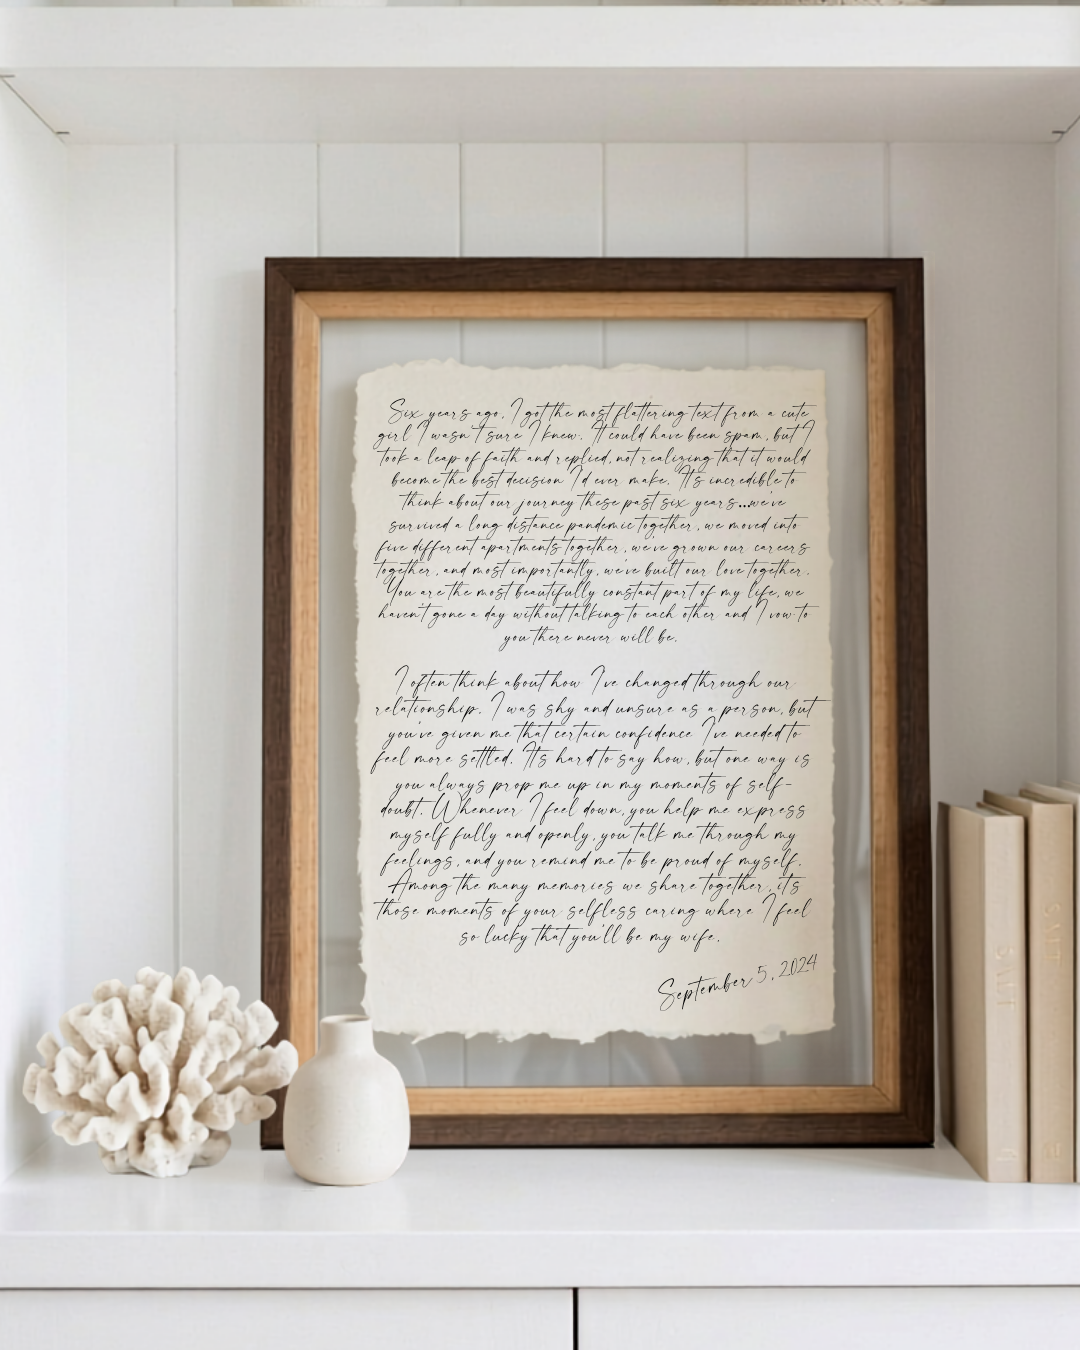 Six years ago, I got the most flattering text from a cute
girl I wasn't sure I knew. It could have been spam, but I
took a leap of faith and replied, not realizing that it would
become the best decision I'd ever make. It's incredible to
think about our journey these past six years...we've
survived a long distance pandemic together, we moved into
five different apartments together, we've grown our careers
together, and most importantly, we've built our love together.
You are the most beautifully constant part of my life, we
haven't gone a day without talking to each other and I vow to
you there never will be.
I often think about how I've changed through our
relationship. I was shy and unsure as a person, but
you've given me that certain confidence I've needed to
feel more settled. It's hard to say how, but one way is
you always prop me up in my moments of self-
doubt. Whenever I feel down, you help me express
myself fully and openly, you talk me through my
feelings, and you remind me to be proud of myself.
Among the many memories we share together, it's
those moments of your selfless caring where I feel
so lucky that you'll be my wife.
September 5, 2024
SALT